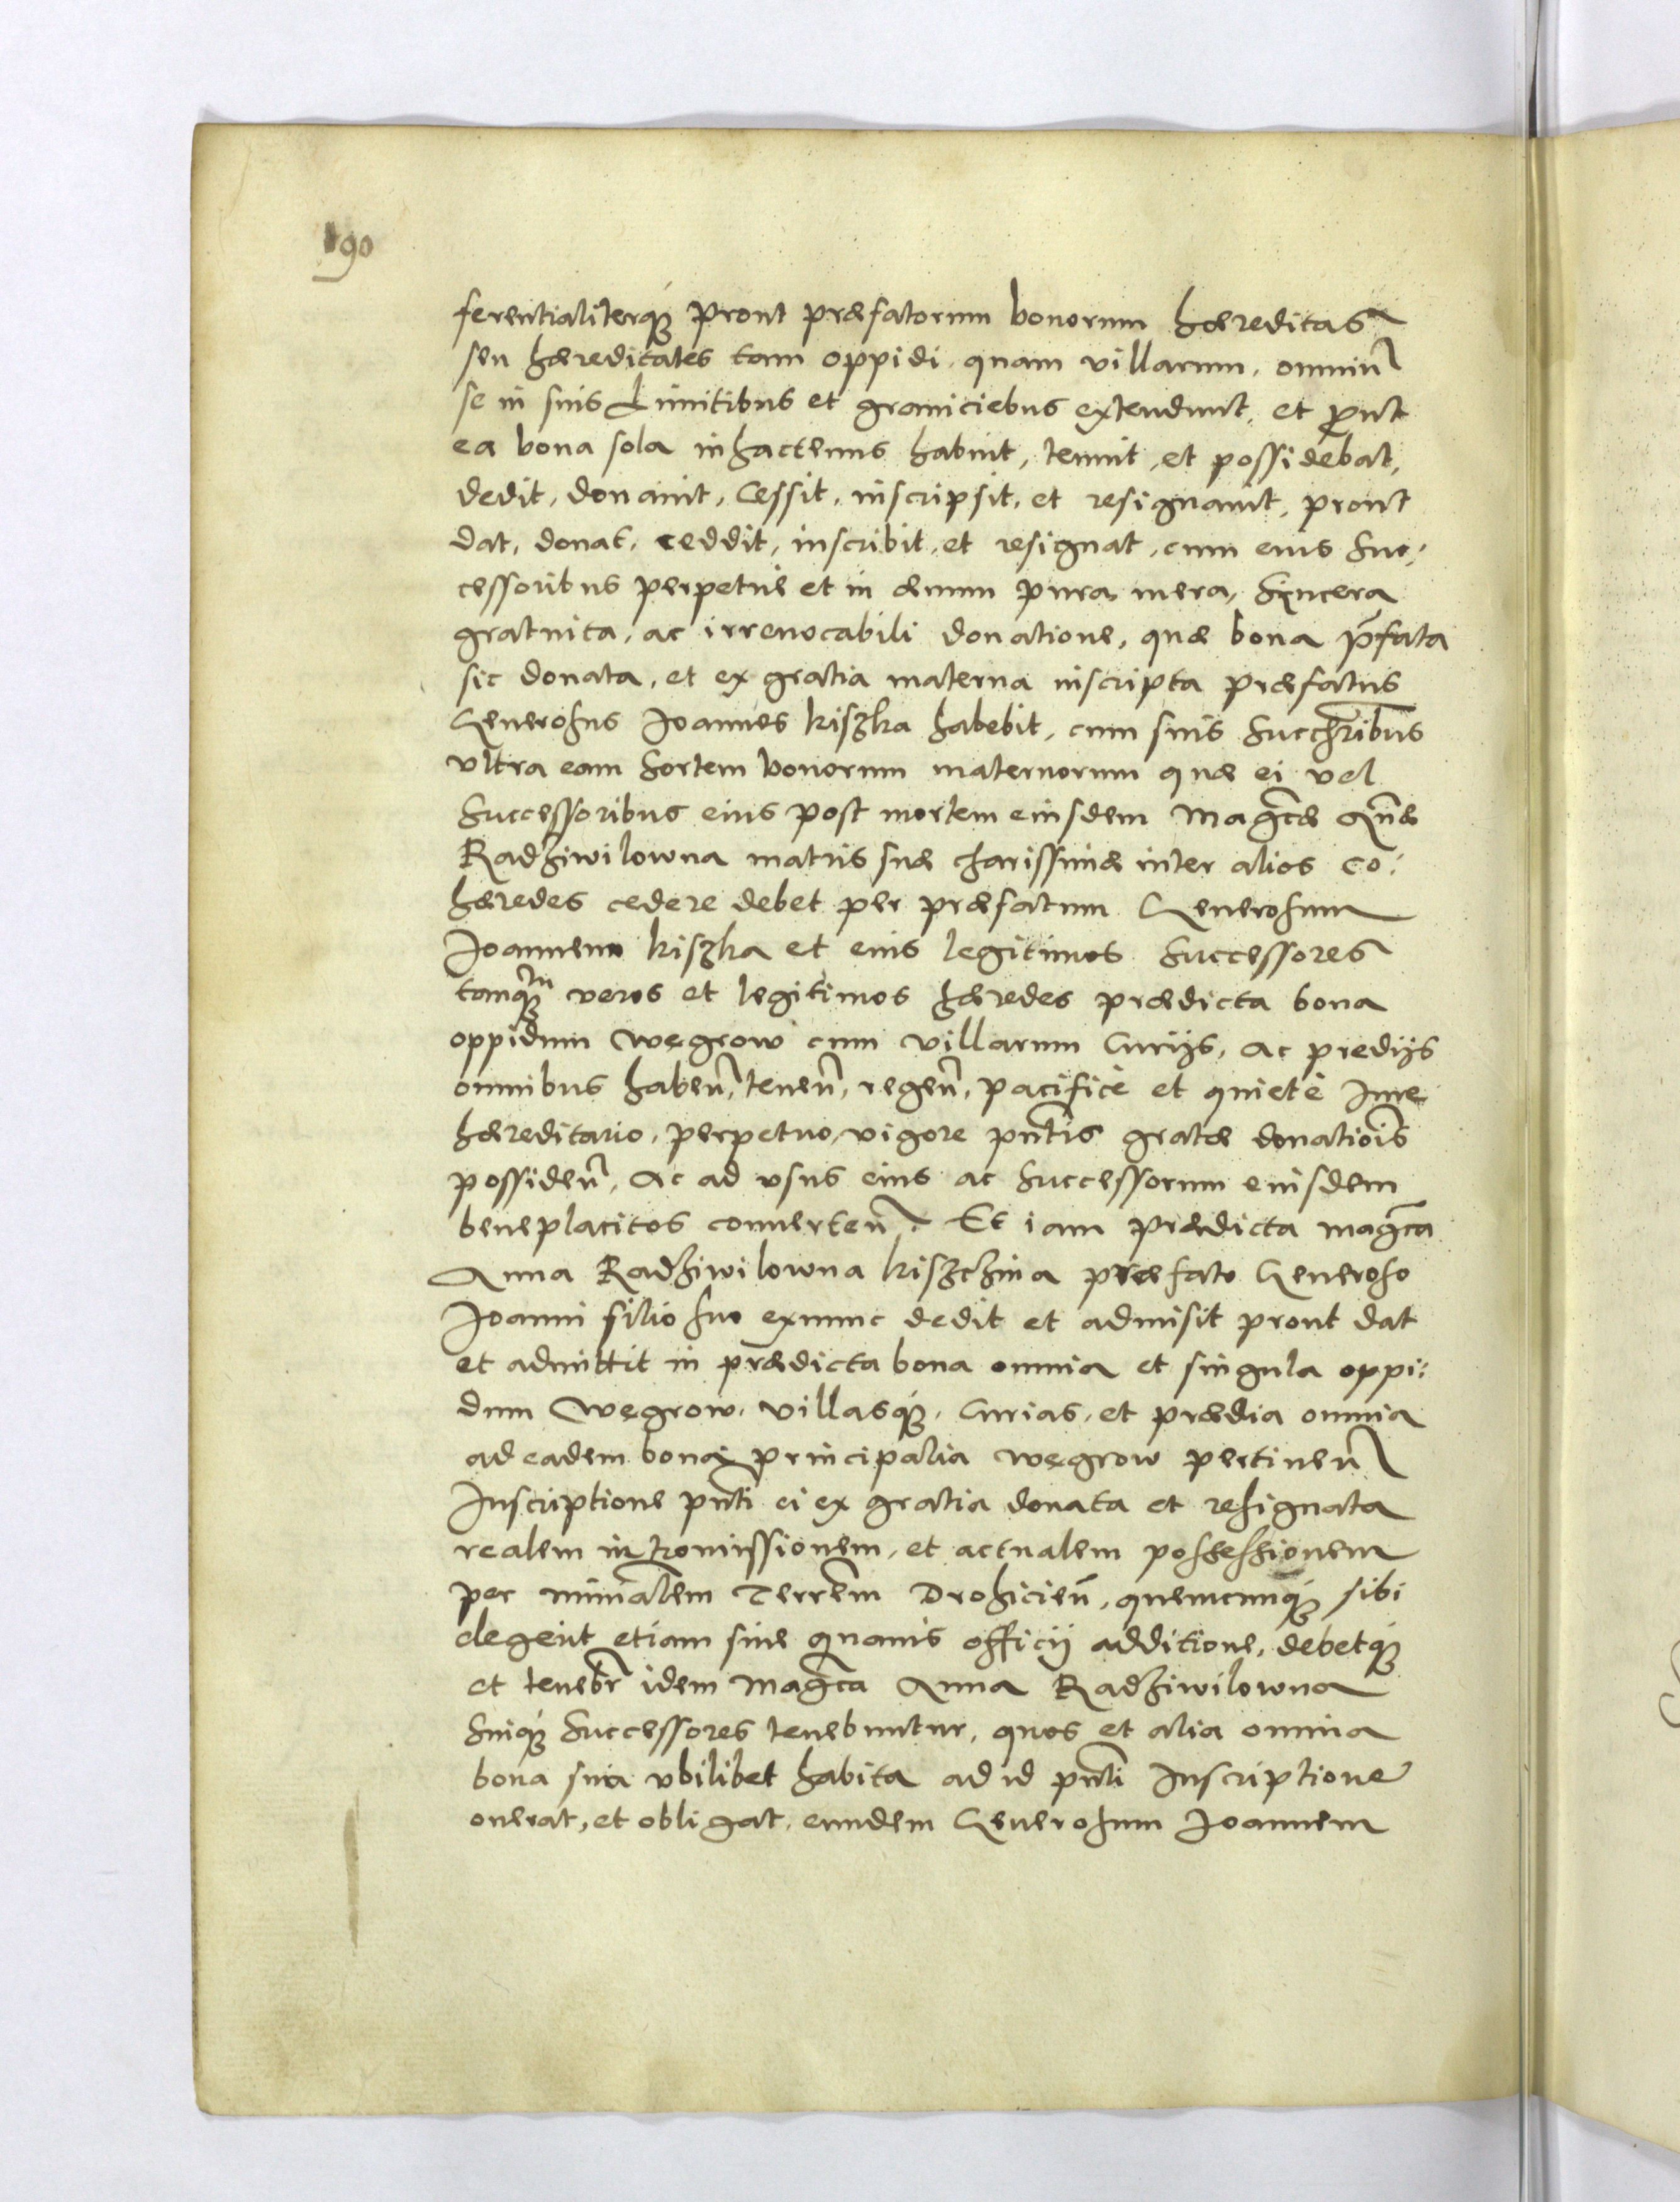 190
ferentialiterq3 prout præfatorum bonorum hæreditas
seu hæreditates tam oppidi, quam villarum, omniũ
se in suis Limitibus et graniciebus extendunt, et p̱ut
ea bona sola inhactenus habuit, tenuit, et possidebat,
dedit, donauit, Cessit, inscripsit, et resignauit, prout
dat, donat, ceddit, inscribit, et resignat, cum eius suc:
cessoribus perpetue et in æuum pura, mera, syncera
gratuita, ac irreuocabili donatione, quæ bona p̄fata
sic donata, et ex gratia materna inscripta præfatus
Generosus Joannes kiszka habebit, cum suis succ̃ribus
vltra eam sortem bonorum maternorum quæ ei vel
Successoribus eius post mortem eiusdem Mag̃cæ Annæ
Radziwilowna matris suæ charissimæ inter alios co:
hæredes cedere debet per præfatum Generosum
Joannem kiszka et eius legitimos Successores
tanq3 veros et legitimos hæredes prædicta bona
oppidum Węgrow cum villarum Curijs, ac predijs
omnibus habeñ, teneñ, regeñ, pacificè et quietè Iure
hæreditario, perpetuo, vigore pñtis gratæ donatiõis
possideñ, Ac ad vsus eius ac successorum eiusdem
beneplacitos conuerteñ. Et iam prædicta mag̃ca
Anna Radziwilowna kiszczina præfato Generoso
Joanni filio suo exnunc dedit et admisit prout dat
et admittit in prædicta bona omnia et singula oppi:
dum Węgrow, villasq3, Curias, et prædia omnia
ad eadem bona principalia węgrow pertineñ
Inscriptione pñti ei ex gratia donata et resignata
realem intromissionem, et actualem possessionem
per minĩalem Terrẽm Drohicieñ, quemcunq3 sibi
elegerit etiam sine quauis officij additione, debetq3
et tenebr̃ idem Mag̃ca Anna Radziwilowna
suiq3 successores tenebuntur, quos et alia omnia
bona sua vbilibet habita ad id pñti Inscriptione
onerat, et obligat, eundem Generosum Joannem